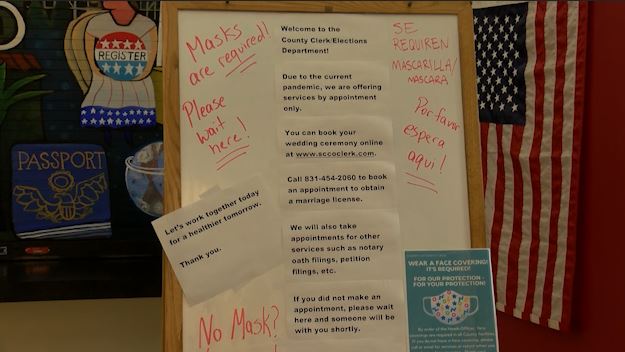 REGISTER
PASSPORT
Masks
are required!
Please
wait
here!
Let's work together today
for a healthier tomorrow.
Thank you.
No Mask?
Welcome to the
County Clerk/Elections
Department!
Due to the current
pandemic, we are offering
services by appointment
only.
You can book your
wedding ceremony online
at www.sccoclerk.com.
Call 831-454-2060 to book
an appointment to obtain
a marriage license.
We will also take
appointments for other
services such as notary
oath filings, petition
filings, etc.
If you did not make an
appointment, please wait
here and someone will be
with you shortly.
SE
REQUIREN
MASCARILLA/
MASCARA
Por favor
espera
aqui!
WEAR A FACE COVERING!
IT'S REQUIRED!
FOR OUR PROTECTION -
FOR YOUR PROTECTION!
By order of the Health Officer, face
coverings are required in all County facilities.
If you do not have a face covering, please